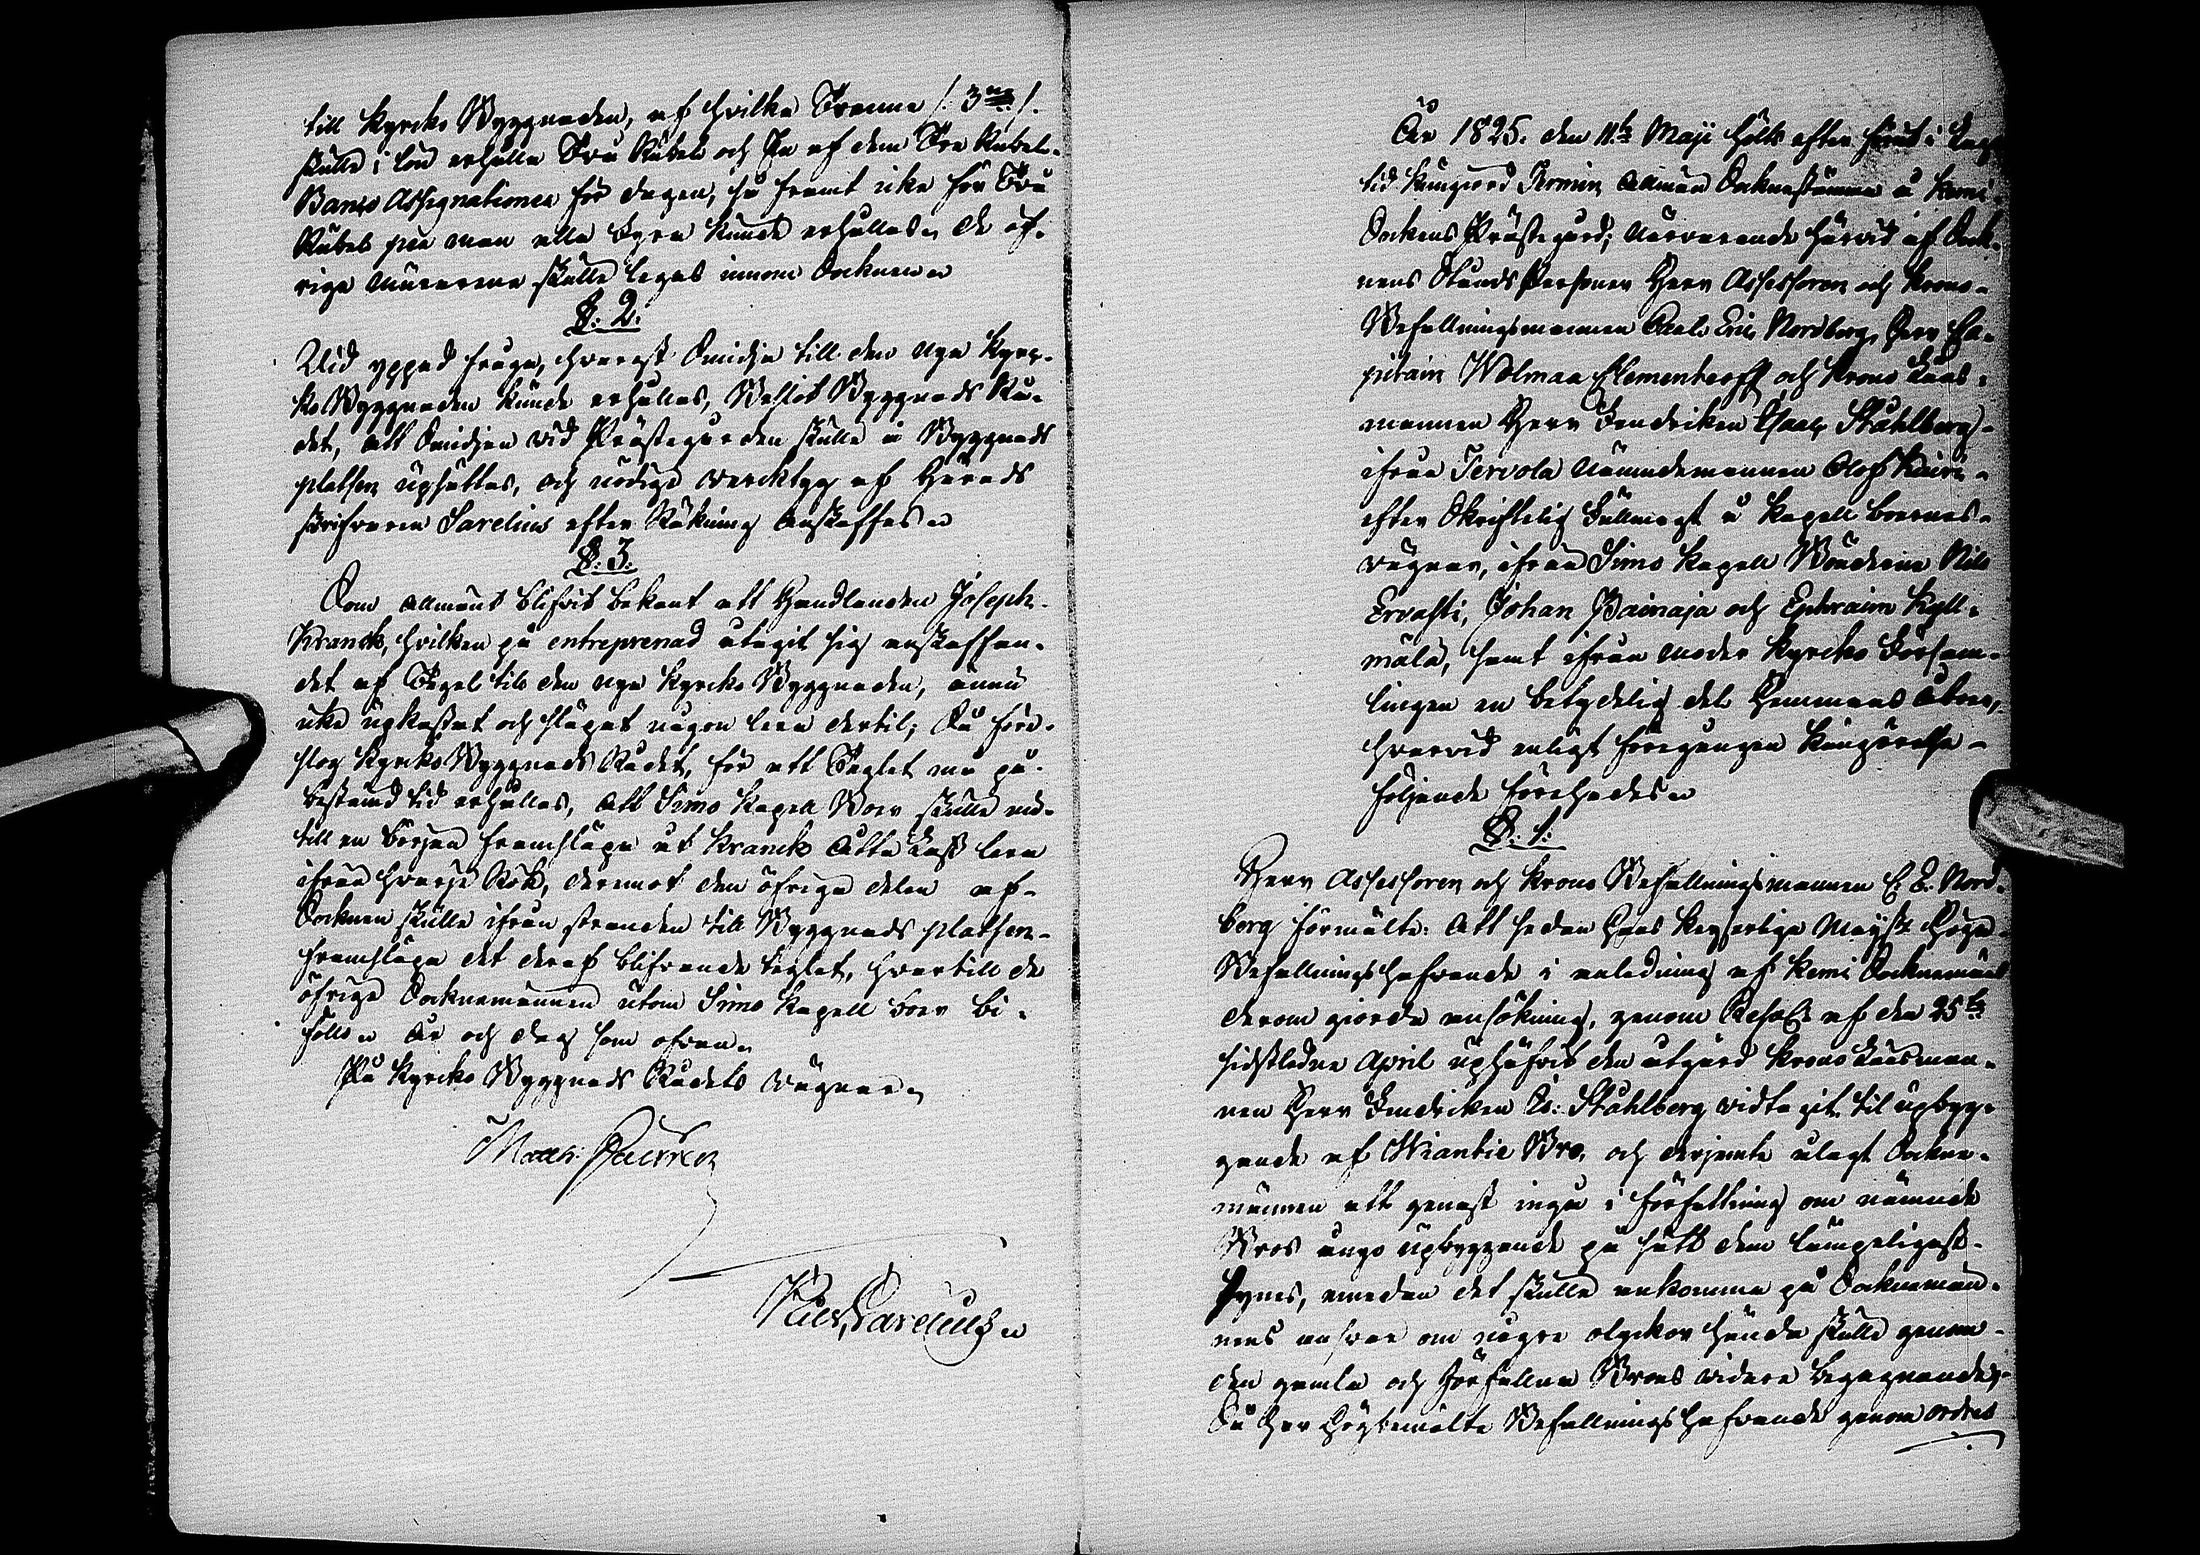 till Kyrcko Byggnaden, af hvilka Trenne /: 3ne :/
skulle i lön erhålla Två Rubel och En af dem Tre Rubel
Banco Assignationer för dagen, så framt icke för Två
Rubel per man alla Tyra kunde erhållas, De öf-
rige Murarena skulle legas innom Socknen
§: 2:
Vid yppad fråga, hvarest Smidja till den nya Kyrc-
ko Byggnaden kunde erhållas, Beslöt Byggnads Rå-
det, att Smidjan vid Prästegården skulle å Byggnads
platsen upsättas, och nödige wercktyg af Härads
skrifvaren Sarelius efter Räkning anskaffas
§: 3:
Som allmänt blifvit bekant att Handlanden Joseph
Kranck, hvilken på entreprenad utagit sig anskaffan-
det af Tegel till den nya Kyrcko Byggnaden, ännu
icke upkastat och släpat någon lera dertil; Så före-
slog Kyrcko Byggnads Rådet, för att Teglet må på
bestämd tid erhållas, att Simo Kapell Boer skulle nu
till en början framsläpa åt Kranck Åtta Lass lera
ifrån hvarje Rök, deremot den öfriga delen af
Socknen skulle ifrån stranden till Byggnads platsen
framsläpa det deraf blifvande teglet, hvartill de
öfrige Socknemännen utom Simo Kapell boer bi-
föllo År och dag som ofvan
På Kyrcko Byggnads Rådets vägnar
Math:
Sarelius
År 1825. den 11te Maji hölts efter förut i Lag
tid kungiord Termin Allmän Socknestämma i Kemi
Sockens Prästegård; närvarande härvid af Sock-
nens Stånds Personer Herr Assessoren och Krono
Befallningsmannen Carl Eric Nordberg, Herr Ca-
pitain Wolmar Clementeoff och Krono Läns-
mannen Herr Fendricken Isaac Ståhlberg
ifrån Tervola Nämndemannen Olof Kauri
efter Skriftelig Fullmagt å Kapell boernes
vägnar, ifrån Simo Kapell Bönderne Nils
Ervasti, Johan Bainaja och Ephraim Kyll-
mälä, samt ifrån Moder Kyrcko Försam-
lingen en betydelig del Hemmans Åboer,
hvarvid enligt föregången kungörelse
följande förehades
§: 1:
Herr Assessoren och Krono Befallningsmannen C: E: Nord-
berg förmälte: att sedan Hans Keyserlige Mayst: Höga
Befallningshafvande i anledning af Kemi Sockneméns
derom giorda ansökning, genom Resol: af den 25te
sidstledne April uphäfvit den åtgärd Krono Länsman-
nen Herr Fendricken Is: Ståhlberg vidtagit til upbyg-
gande af Wiantie Bro, och derjemte ålagt Sockne-
männen att genast ingå i författning om nämnde
Bros ånyo upbyggande på sätt dem lämpeligast
synes, emedan det skulle ankomma på Sockneman-
nens ansvar om några olyckor hända skulle genom
den gamla och förfallna Brons vidare begagnande;
Så har Högbemälte Befallningshafvande genom ordres